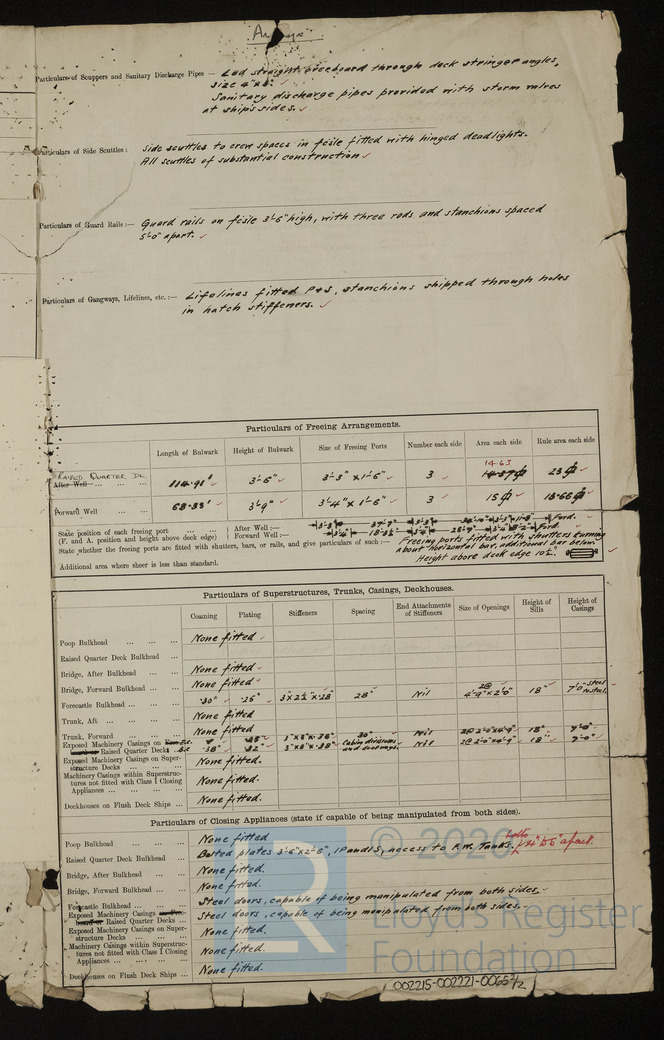 Particulars of Scuppers and Sanitary Discharge Pipes — Led straight overboard through deck stringer angles,
size 4"
Sanitary discharge pipes provided with storm valves
at ship's sides.
Particulars of Side Scuttles: Side scuttles to crew spaces in fcsle fitted with hinged deadlights.
All scuttles of substantial construction
Particulars of Guard Rails:— Guard rails on fcsle 3'-6" high, with three rods and stanchions spaced
5'-0" apart.
Particulars of Gangways, Lifelines, etc.:— Lifelines fitted P&S, stanchions shipped through holes
in hatch stiffeners.
Particulars of Freeing Arrangements.
Length of Bulwark Height of Bulwark Size of Freeing Ports Number each side Area each side Rule area each side
RAISED QUARTER DK
14.63
After Well ... ... ... 114.91' 3'-6" 3'-3" x 1'-6" 3 23
Forward Well ... ... 68.33' 3'-9" 3'-4" x 1'-6" 3 15 18.66
State position of each freeing port ... ... After Well:—
(F. and A. position and height above deck edge) Forward Well:—
State whether the freeing ports are fitted with shutters, bars, or rails, and give particulars of such:— Freeing ports fitted with shutters turning
about horizontal bar, additional bar below.
Height above deck edge 10½"
Additional area where sheer is less than standard.
Particulars of Superstructures, Trunks, Casings, Deckhouses.
Coaming Plating Stiffeners Spacing End Attachments of Stiffeners Size of Openings Height of Sills Height of Casings
Poop Bulkhead ... ... ... None fitted
Raised Quarter Deck Bulkhead ...
Bridge, After Bulkhead ... ... None fitted
Bridge, Forward Bulkhead ... ... None fitted
Forecastle Bulkhead ... ... .30" .25" 3"x2½"x.25" 28" Nil 2@ 4'-9"x2'0" 18" 7'0" steel to steel
Trunk, Aft ... ... ... None fitted
Trunk, Forward ... ... ... None fitted
Exposed Machinery Casings on
Raised Quarter Decks .38" .32" Cabin divisions Nil 2@ 2'-0"x4'-9" 18" 7'-0"
Exposed Machinery Casings on Superstructure Decks ... ... None fitted.
Machinery Casings within Superstructures not fitted with Class I Closing Appliances ... ... None fitted.
Deckhouses on Flush Deck Ships ... None fitted.
Particulars of Closing Appliances (state if capable of being manipulated from both sides).
Poop Bulkhead ... ... ... None fitted
Raised Quarter Deck Bulkhead ... Bolted plates 3'-6"x2'-6", 1P and 1S, access to F.W. Tanks. bolts apart.
Bridge, After Bulkhead ... ... None fitted.
Bridge, Forward Bulkhead ... ... None fitted.
Forecastle Bulkhead ... ... Steel doors, capable of being manipulated from both sides.
Exposed Machinery Casings
Raised Quarter Decks ... Steel doors, capable of being manipulated from both sides.
Exposed Machinery Casings on Superstructure Decks ... ... None fitted.
Machinery Casings within Superstructures not fitted with Class I Closing Appliances ... ... None fitted.
Deckhouses on Flush Deck Ships ... None fitted.
© 2020
Lloyd's Register
Foundation
002215-002221-0065 2/2